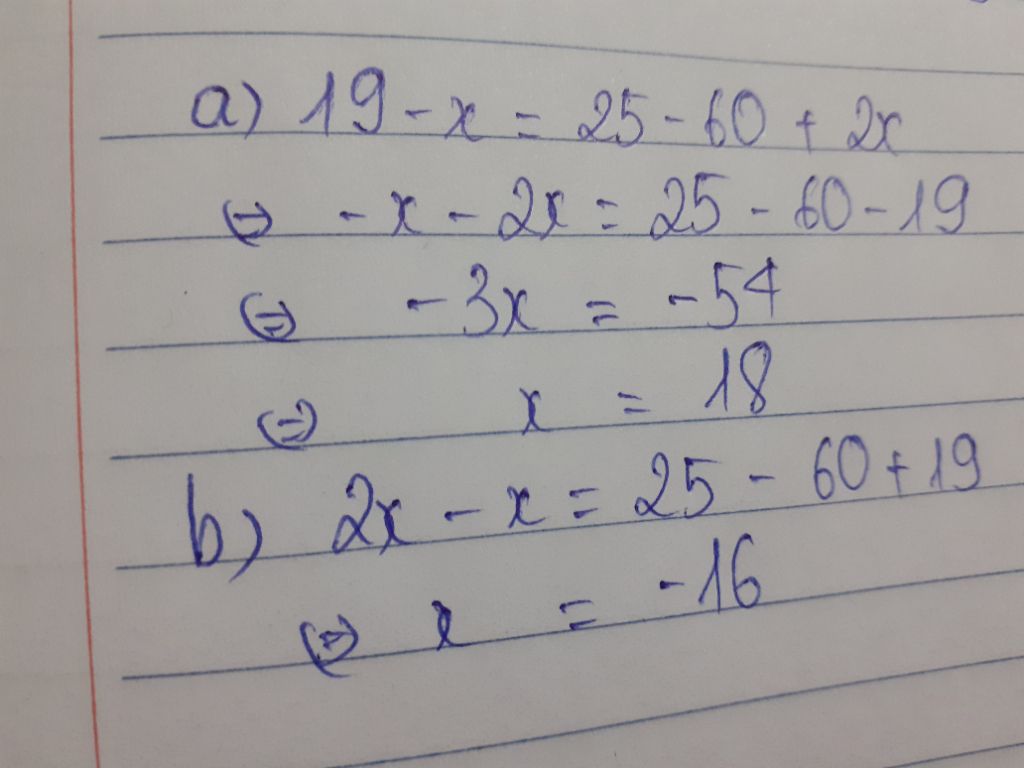 a) 19 - x = 25 - 60 + 2x
⇔ - x - 2x = 25 - 60 - 19
⇔ - 3x = - 54
⇔ x = 18
b) 2x - x = 25 - 60 + 19
⇔ x = - 16